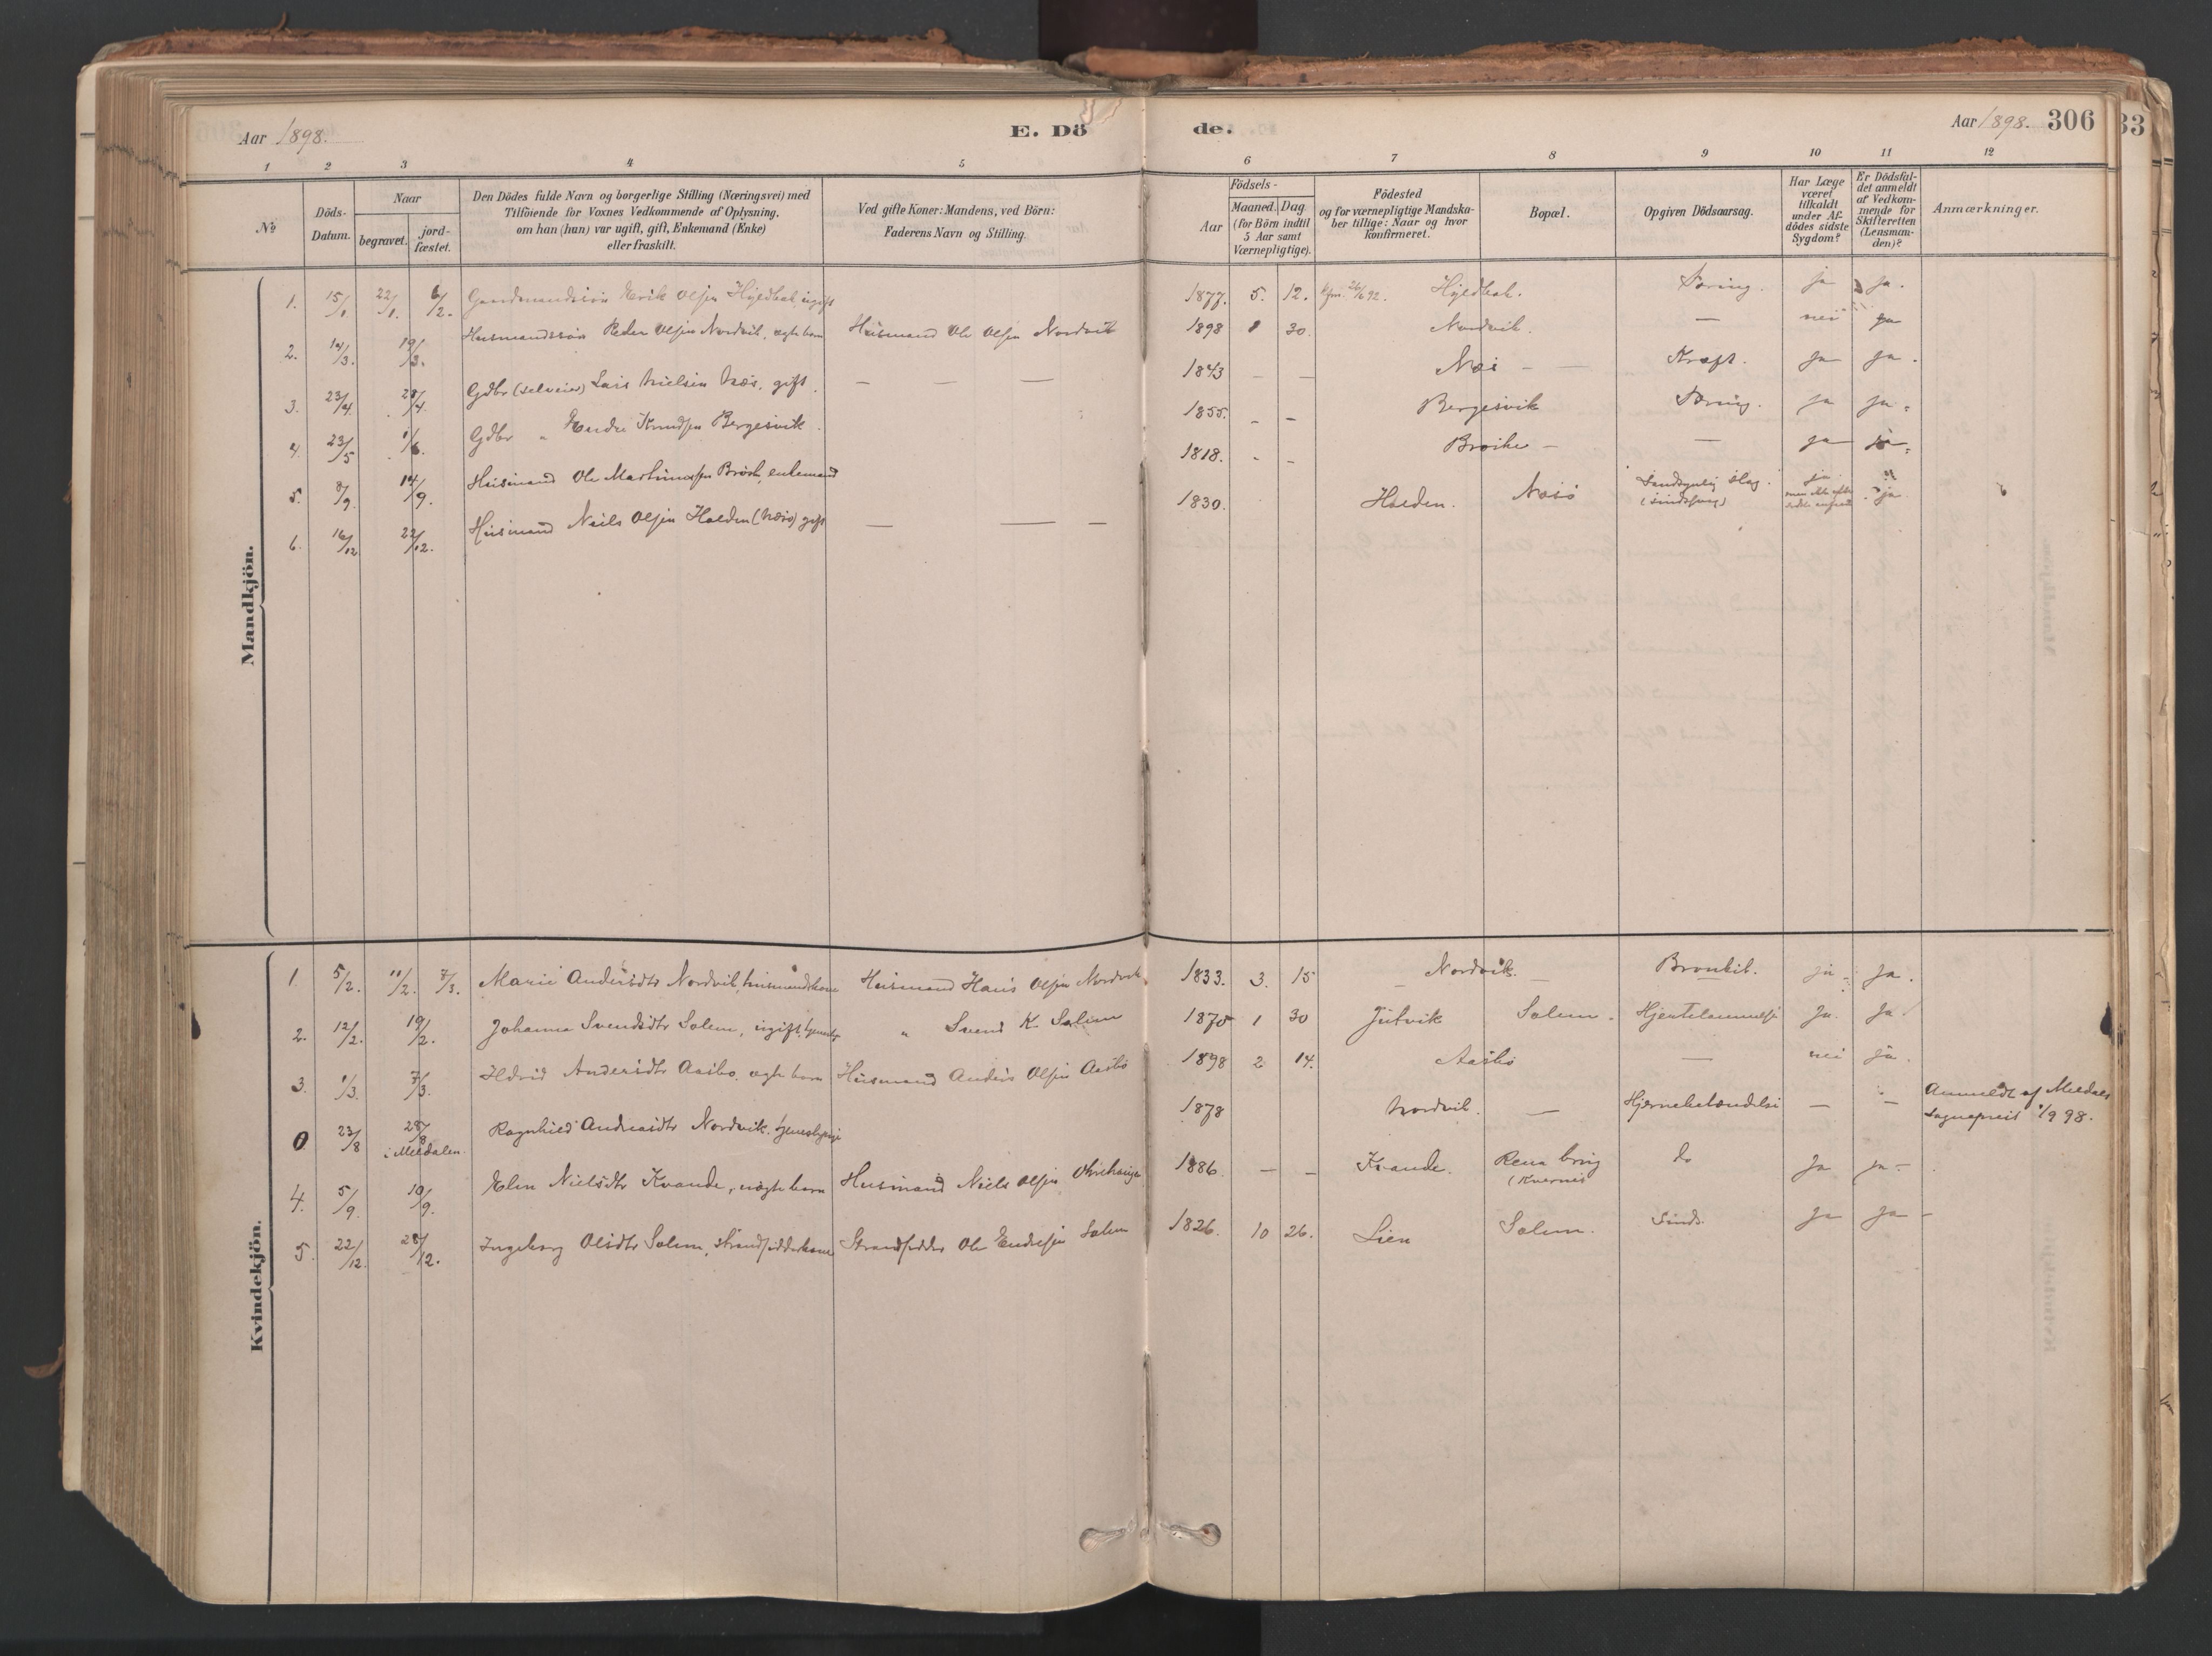 Aar 1898.
E. Dö
de.
Aar 1898. 306
33
1 2 3 4 5 6 7 8 9 10 11 12
№
Döds-
Datum.
Naar
begravet.
jord-
fæstet.
Den Dödes fulde Navn og borgerlige Stilling (Næringsvei) med
Tilföiende for Voxnes Vedkommende af Oplysning,
om han (hun) var ugift, gift, Enkemand (Enke)
eller fraskilt.
Ved gifte Koner: Mandens, ved Börn:
Faderens Navn og Stilling.
Födsels-
Aar
Maaned. Dag
(for Börn indtil
5 Aar samt
Værnepligtige).
Födested
og for værnepligtige Mandska-
ber tillige: Naar og hvor
konfirmeret.
Bopæl.
Opgiven Dödsaarsag.
Har Læge
været
tilkaldt
under Af-
dödes sidste
Sygdom?
Er Dödsfal-
det anmeldt
af Vedkom-
mende for
Skifteretten
(Lensman-
den)?
Anmærkninger.
Mandkjön.
1. 15/1 22/1. 6/2. Gaardmandssön Erik Olsen ugift 1877. 5. 12. 26/6 92. Tæring. ja ja.
2. 14/3. 19/3. Husmandssön Peder Olsen Nordvik, ægte barn Husmand Ole Olsen Nordvik 1898 30. Nordvik. — nei ja
3. 23/4. 28/4. Gdbr (selveier) Lars Nielsen Næs, gift. — — — 1843 — — Næs — — Kræft. ja ja.
4. 23/5 1/6. Gdbr " Endre Knudsen Bergesvik. 1855. - - Bergesvik Tæring. ja ja.
5. 8/9. 14/9. Husmand Ole enkemand 1818. - - — — ja ja.
6. 16/12 22/12. Husmand Niels Olsen Halden (Næs) gift — — — 1830. Halden. Næs Slag. ja ja
Kvindekjön.
1. 5/2. 11/2. 7/3. Marie Andersdtr Nordvik, husmandskone Husmand Hans Olsen Nordvik 1833. 3. 15 Nordvik. Bronkit. ja. ja.
2. 12/2. 19/2. Johanna Svendsdtr Solem, ugift " Svend K. Solem 1875 1 30 Jutvik Solem. Hjertelammelse Ja. ja.
3. 1/3. 7/3. Andersdtr Aasbö, ægte barn Husmand Anders Olsen Aasbö 1898 2 14. Aasbö — nei ja.
0. 23/8 28/8 i Meldalen. Ragnhild Andreasdtr Nordvik. tjenestepige 1878 Nordvik. — Hjernebetændelse — — Anmeldt af Meldals
Sognepræst 1/9 98.
4. 5/9. 10/9. Elen Nielsdtr Kvande, uægte barn Husmand Niels Olsen 1886 — — Kvande. (Kvernes do Ja ja -
5. 22/12. 28/12. Ingeborg Olsdtr Solem, strandsidderkone Strandsidder Ole Endresen Solem 1826. 10 26. Lien Solem. Ja ja -